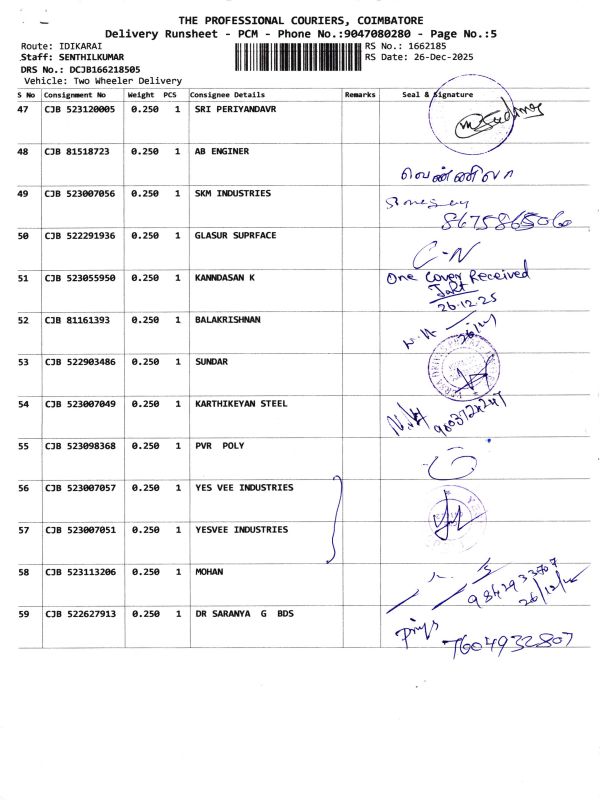 THE PROFESSIONAL COURIERS, COIMBATORE
Delivery Runsheet - PCM - Phone No.:9047080280 - Page No.:5
Route: IDIKARAI RS No.: 1662185
Staff: SENTHILKUMAR RS Date: 26-Dec-2025
DRS No.: DCJB166218505
Vehicle: Two Wheeler Delivery
S No Consignment No Weight PCS Consignee Details Remarks Seal & Signature
47 CJB 523120005 0.250 1 SRI PERIYANDAVR
48 CJB 81518723 0.250 1 AB ENGINER வெண்ணிலா
49 CJB 523007056 0.250 1 SKM INDUSTRIES 8675865060
50 CJB 522291936 0.250 1 GLASUR SUPRFACE C-N
51 CJB 523055950 0.250 1 KANNDASAN K One Cover Received
26.12.25
52 CJB 81161393 0.250 1 BALAKRISHNAN
53 CJB 522903486 0.250 1 SUNDAR
54 CJB 523007049 0.250 1 KARTHIKEYAN STEEL
55 CJB 523098368 0.250 1 PVR POLY
56 CJB 523007057 0.250 1 YES VEE INDUSTRIES
57 CJB 523007051 0.250 1 YESVEE INDUSTRIES
58 CJB 523113206 0.250 1 MOHAN
59 CJB 522627913 0.250 1 DR SARANYA G BDS
7604932807